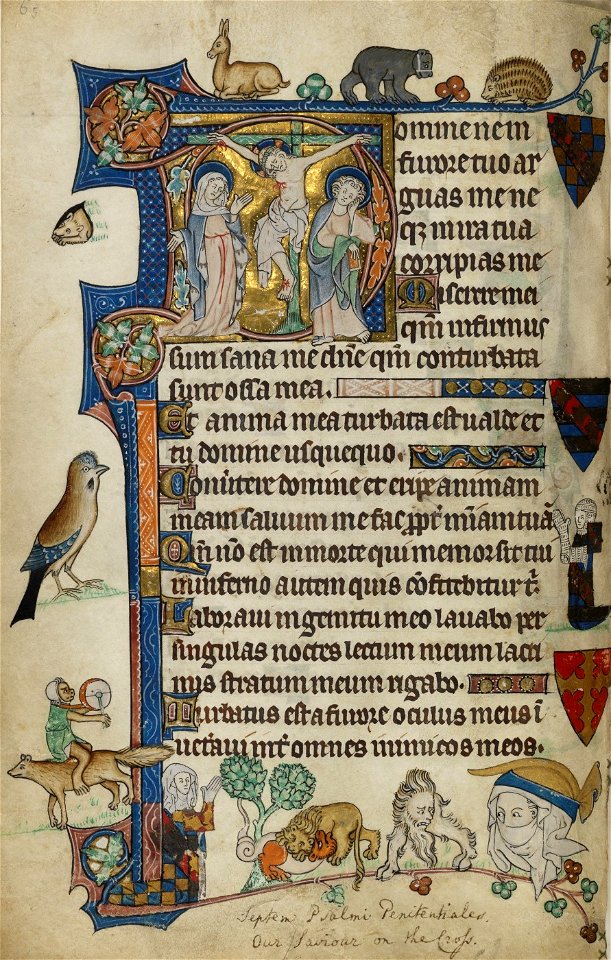 65
Domine ne in
furore tuo ar
guas me ne
qꝫ in ira tua
corripias me
Miserere mei
qm̄ infirmus
sum sana me dn̄e qm̄ conturbata
sunt ossa mea.
Et anima mea turbata est ualde et
tu domine usquequo.
Conūtere domine et eripe animam
meam saluum me fac ꝓpt̄ miā̄m tuā
Qm̄ nō est in morte qui memor sit tui
in inferno autem quis cōfitebitur t̄.
Laboraui in gemitu meo lauabo per
singulas noctes lectum meum lacri
mis stratum meum rigabo.
Turbatus est a furore oculus meus ī
uet̄aui int̄ omnes inimicos meos.
Septem Psalmi Penitentiales.
Our Saviour on the Cross.